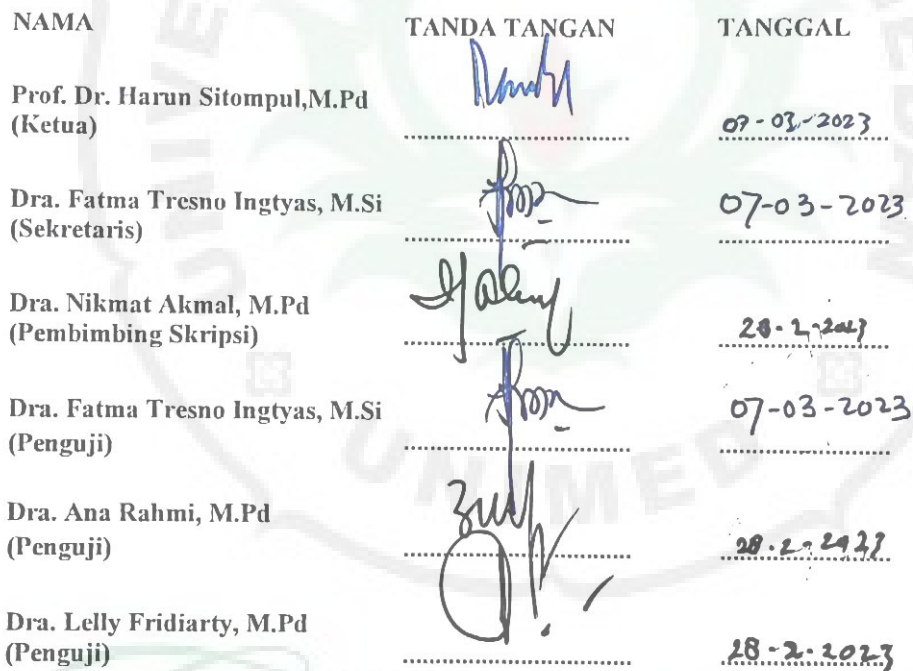 NAMA TANDA TANGAN TANGGAL
Prof. Dr. Harun Sitompul,M.Pd
(Ketua) 07-03-2023
Dra. Fatma Tresno Ingtyas, M.Si 07-03-2023
(Sekretaris)
Dra. Nikmat Akmal, M.Pd
(Pembimbing Skripsi) 28-2-2023
Dra. Fatma Tresno Ingtyas, M.Si 07-03-2023
(Penguji)
Dra. Ana Rahmi, M.Pd
(Penguji) 28-2-2023
Dra. Lelly Fridiarty, M.Pd
(Penguji) 28-2-2023
UNIMED